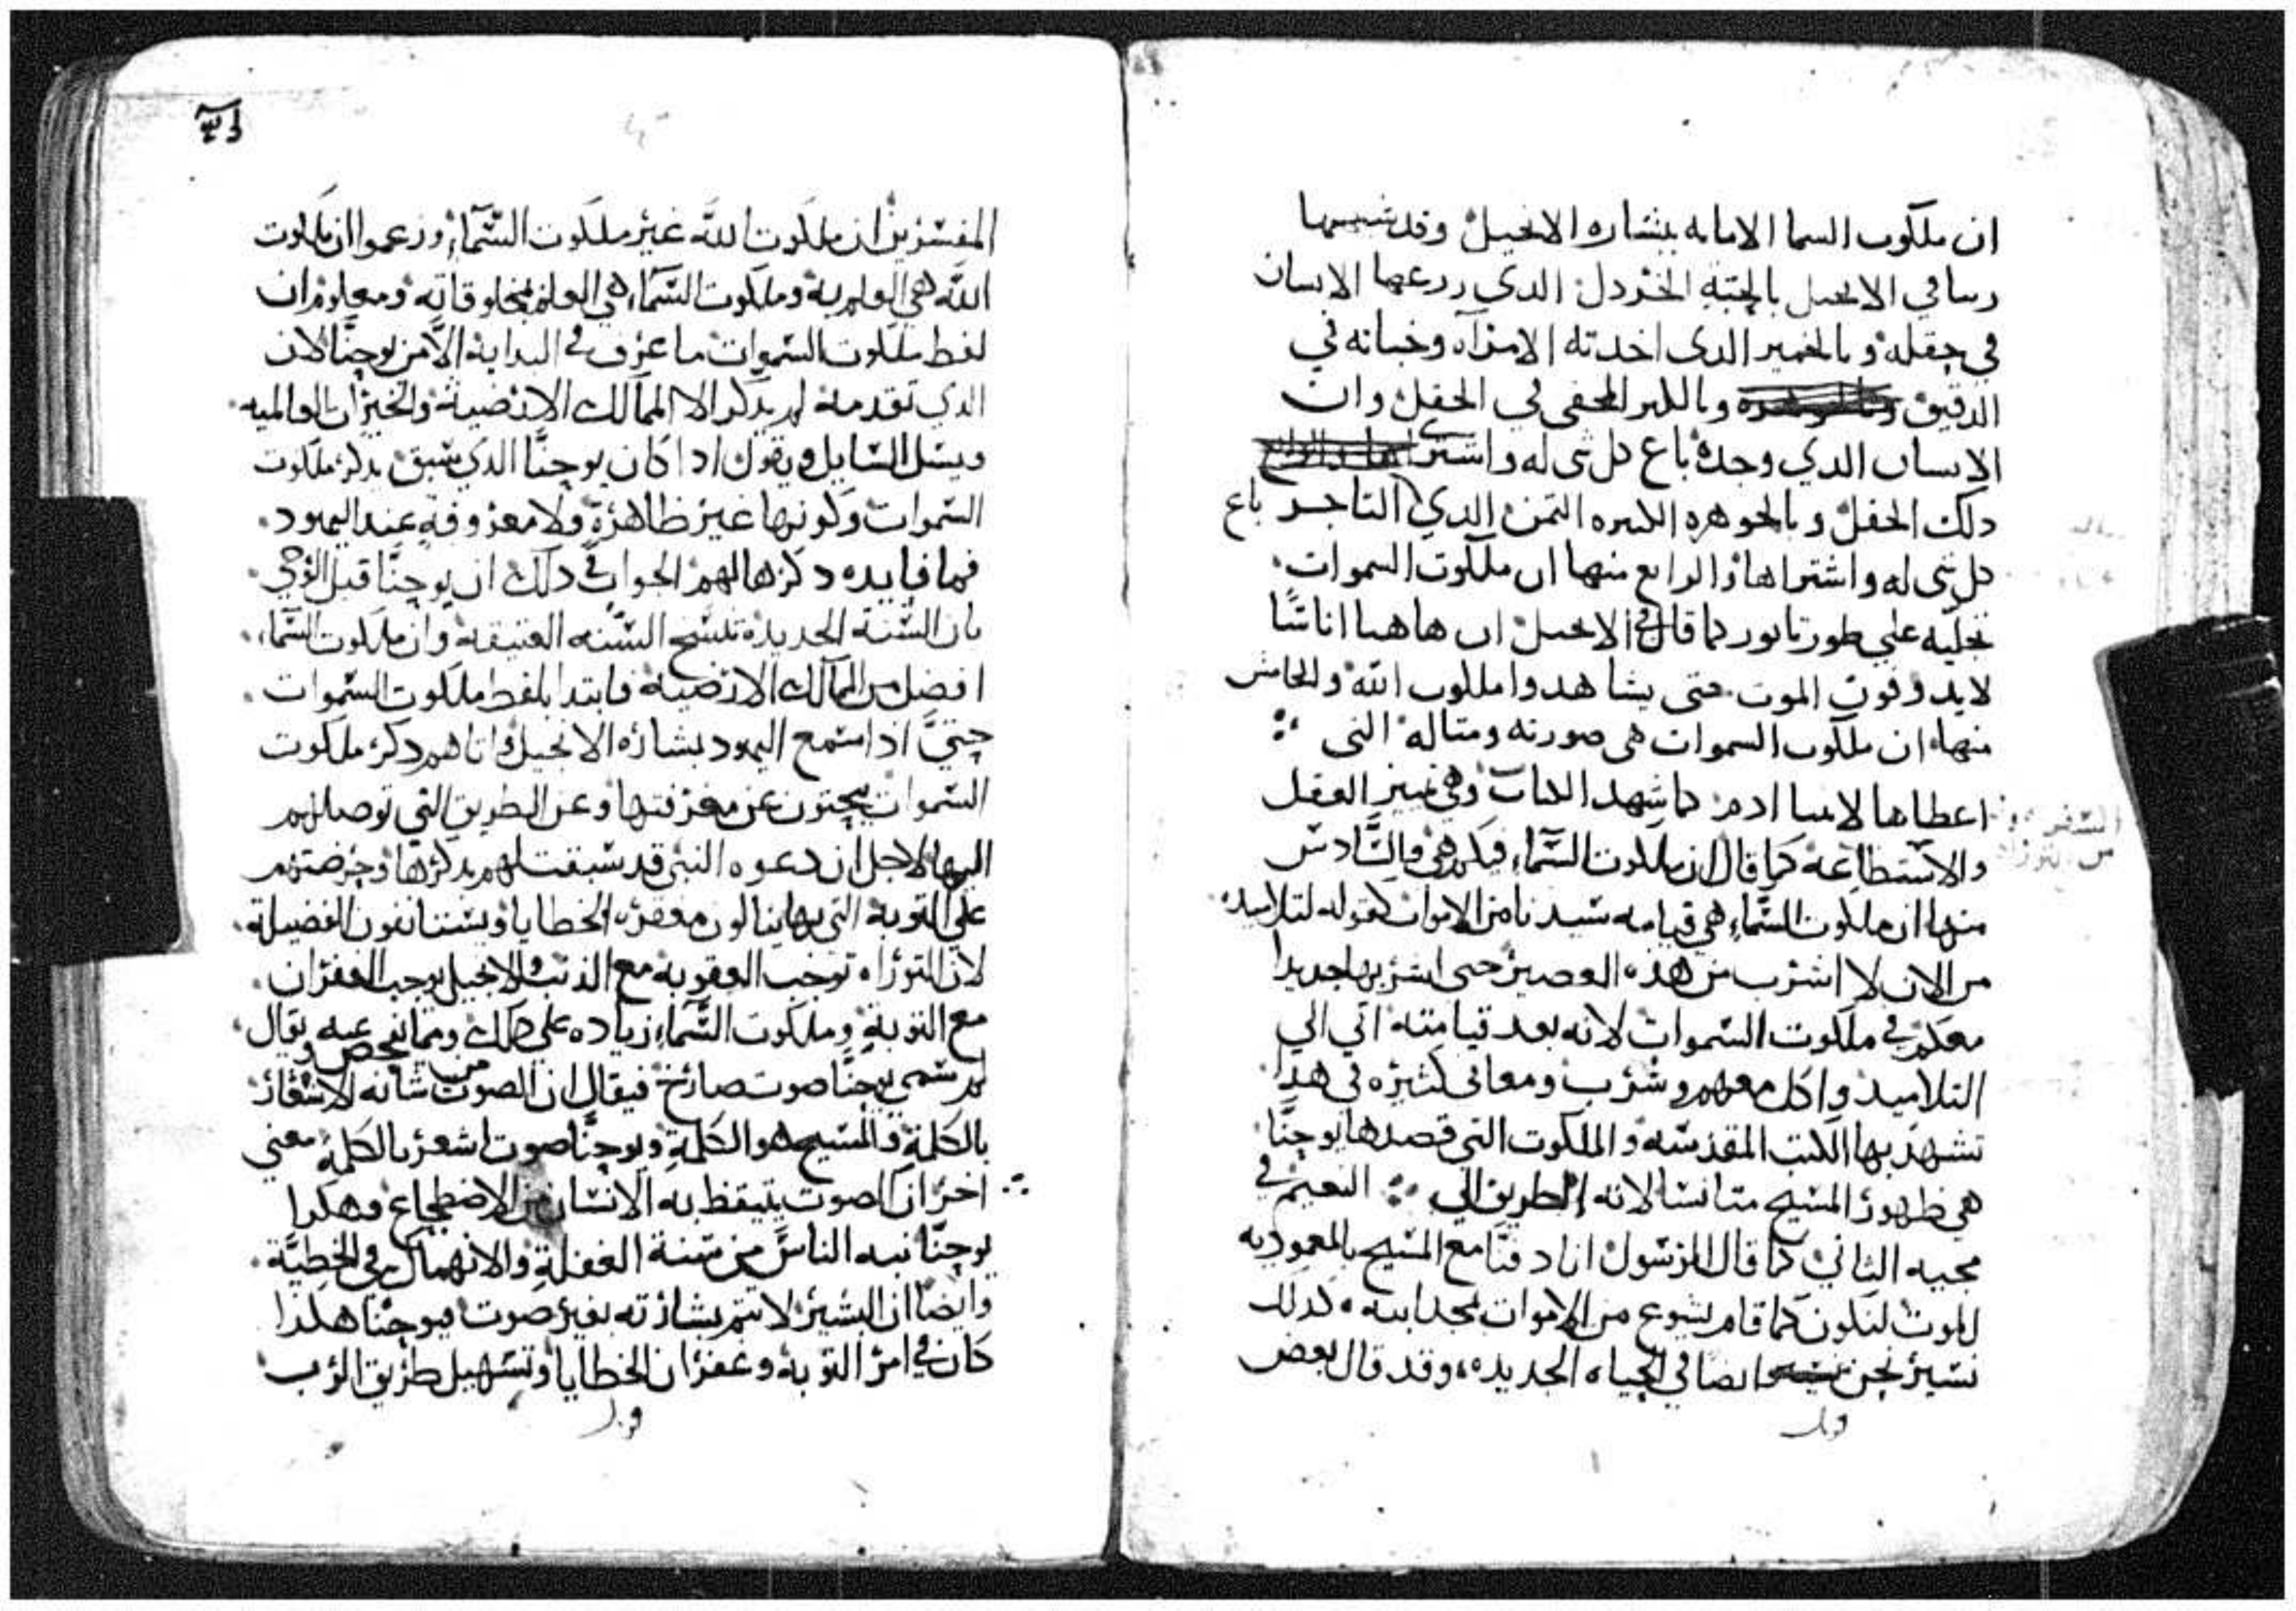 ان ملكوت السما الامانه ببشاره الانجيل وقد شبهها
ربنا في الانجيل بالحبة الخردل الدي زرعها الانسان
في حقله وبالخمير الدى اخدته الامرآه وخباته في
الدقيق وبالكنز المخفى في الحقل وان
الانسان الدي وجده باع كل شى له واشترى
دلك الحقل وبالجوهره الكبيره التمن الدي التاجر باع
كل شى له واشتراها والرابع منها ان ملكوت السموات
تجليه على طور تابور كما قال في الانجيل ان هاهنا اناسًا
لايدوقون الموت حتى يشاهدوا ملكوت الله والخامس
منها ان ملكوت السموات هى صورته ومتاله التى
اعطاها لابينا ادم كما شهد الكتاب وهي تمييز العقل
والاستطاعه كما قال ان ملكوت السماء فيكم هي والسادس
منها ان ملكوت السماء هي قيامه سيدنا من الاموات كقوله لتلاميده
من الان لا اشرب من هذه العصير حتى اشربها جديدا
معكم في ملكوت السموات لانه بعد قيامته اتي الي
التلاميد واكل معهم وشرب ومعانى كثيره في هذا
تشهد بها الكتب المقدسه والملكوت التي قصدها يوحنَّا
هي ظهور المسيح متانسا لانه الطريق الي النعيم في
مجيه التاني كما قال الرسول انا دفنَّا مع المسيح بالمعموديه
للموت لنكون كما قام يسوع من الاموات بمجد ابيه كدلك
نسير نحن ايضا في الحياه الجديده وقد قال بعض
المفسرين ان ملكوت الله غير ملكوت السَّماء وزعموا ان ملكوت
الله هي العلم به وملكوت السَّماء هي العلم بمخلوقاته ومعلوم ان
لفظ ملكوت السموات ما عرف في البداية الاَّ من يوحنَّا لان
الدي تقدمه لم يدكر الا الممالك الارضية والخيرات العالميه
ويسل السايل ويقول ادا كان يوحنَّا الدي سبق بدكر ملكوت
السموات وكونها غير ظاهرةٍ ولا معروفةٍ عند اليهود
فما فايده دكرها لهم الجواب في دلك ان يوحنَّا قبل الوحي
بان السُّنة الجديده تنسخ السُّنه العتيقة وان ملكوت السَّماء
افضل من الممالك الارضية فابتدا بلفظ ملكوت السَّموات
حتيَّ ادا سمع اليهود بشاره الانجيل واتاهم دكر ملكوت
السَّموات يبحتون عن معرفتها وعن الطريق التي توصلهم
اليها لاجل ان دعوه النبى قد سبقت لهم بدكرها وحرضتهم
على التوبة التي بها ينالون مغفره الخطايا ويستانفون الفضيلة
لان التوراه توجب العقوبة مع الذنب والانجيل يوجب الغفران
مع التوبةِ وملكوت السَّماء زياده على دلك ومما نفحص عنه ونقال
لم سمى يوحنَّا صوت صارخ فيقال ان الصوت من شانه الاشعار
بالكلمةِ والمسيح هو الكلمةِ ويوحنَّا صوت اشعر بالكلمةِ معني
اخر ان الصوت يتيقظ به الانسان من الاضطجاع وهكدا
يوحنَّا نبه الناسَّ من سنة الغفلةِ والانهماك في الخطيَّة
وايضًا ان البشير لا تتم بشارته بغير صوت فيوحنَّا هكدا
كان في امر التوبة وغفران الخطايا وتسهيل طريق الرب